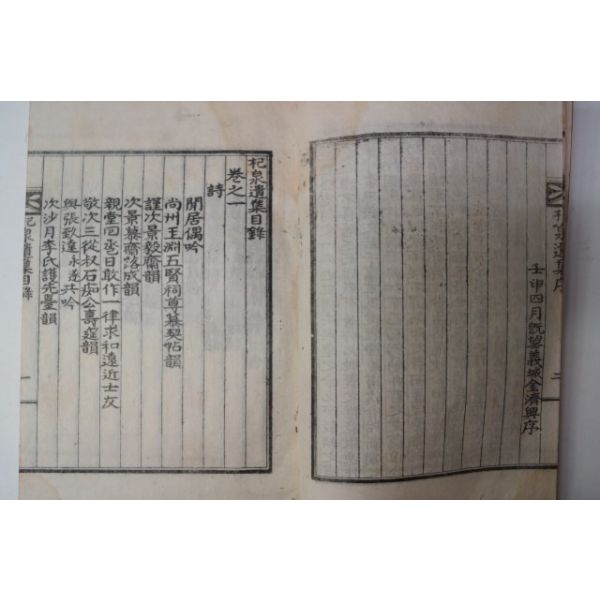 杞泉遺集序
二
壬申四月旣望義城金濟興序
杞泉遺集目錄
卷之一
詩
閒居偶吟
尙州王淵五賢祠尊慕契帖韻
謹次景毅齋韻
次景慕齋落成韻
親堂回巹日敢作一律求和遠近士友
敬次三從叔石痴公壽筵韻
與張致達永遂共吟
次沙月李氏護先臺韻
杞泉遺集目錄
一